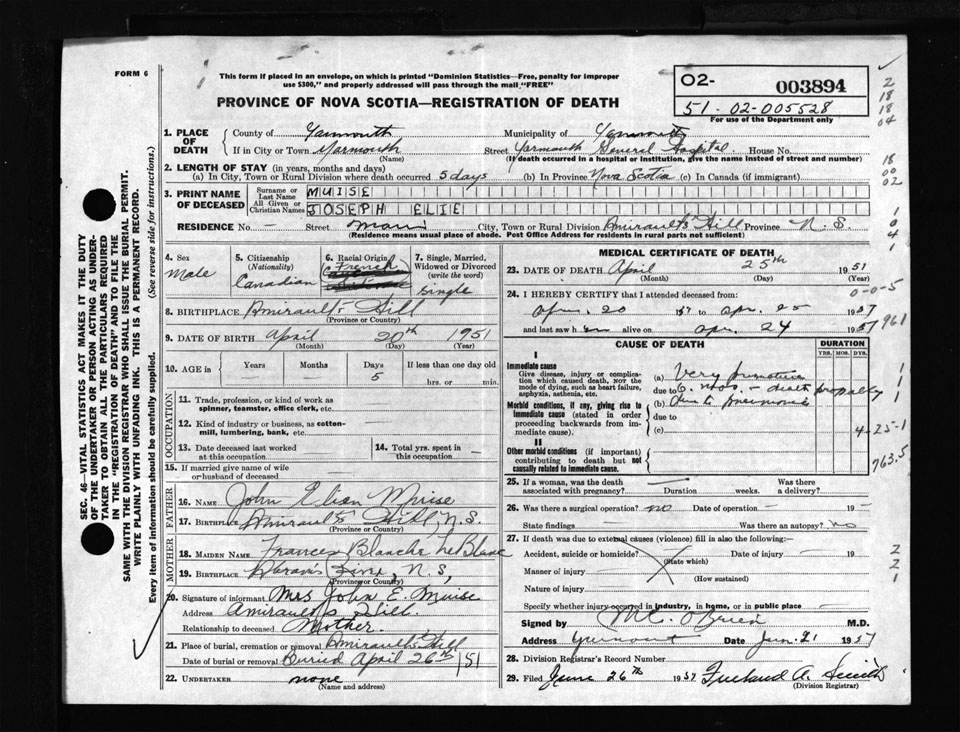 FORM 6
This form if placed in an envelope, on which is printed "Dominion Statistics—Free, penalty for improper
use $300," and properly addressed will pass through the mail "FREE"
PROVINCE OF NOVA SCOTIA—REGISTRATION OF DEATH
02- 003894
51-02-005528
For use of the Department only
2
18
18
04
18
00
02
1
0
4
1
SEC. 46—VITAL STATISTICS ACT MAKES IT THE DUTY
OF THE UNDERTAKER OR PERSON ACTING AS UNDER-
TAKER TO OBTAIN ALL THE PARTICULARS REQUIRED
IN THE "REGISTRATION OF DEATH" AND TO FILE THE
SAME WITH THE DIVISION REGISTRAR WHO SHALL ISSUE THE BURIAL PERMIT.
WRITE PLAINLY WITH UNFADING INK. THIS IS A PERMANENT RECORD.
Every item of information should be carefully supplied. (See reverse side for instructions.)
1. PLACE OF DEATH County of Yarmouth Municipality of Yarmouth
If in City or Town Yarmouth (Name) Street Yarmouth General Hospital House No.
(If death occurred in a hospital or institution, give the name instead of street and number)
2. LENGTH OF STAY (in years, months and days)
(a) In City, Town or Rural Division where death occurred 5 days (b) In Province Nova Scotia (c) In Canada (if immigrant)
3. PRINT NAME OF DECEASED Surname or Last Name MUISE
All Given or Christian Names JOSEPH ELIE
RESIDENCE No. — Street Main City, Town or Rural Division Amirault's Hill Province N. S.
(Residence means usual place of abode. Post Office Address for residents in rural parts not sufficient)
4. Sex Male
5. Citizenship (Nationality) Canadian
6. Racial Origin French
7. Single, Married, Widowed or Divorced (write the word) Single
8. BIRTHPLACE Amirault's Hill
(Province or Country)
9. DATE OF BIRTH April 20th 1951
(Month) (Day) (Year)
10. AGE in Years — Months — Days 5 If less than one day old hrs. or min.
OCCUPATION
11. Trade, profession, or kind of work as spinner, teamster, office clerk, etc.
12. Kind of industry or business, as cotton-mill, lumbering, bank, etc.
13. Date deceased last worked at this occupation
14. Total yrs. spent in this occupation
15. If married give name of wife or husband of deceased
FATHER
16. NAME John Elian Muise
17. BIRTHPLACE Amirault's Hill, N.S.
(Province or Country)
MOTHER
18. MAIDEN NAME Frances Blanche LeBlanc
19. BIRTHPLACE N.S,
(Province or Country)
20. Signature of informant Mrs John E. Muise
Address Amirault's Hill.
Relationship to deceased Mother.
21. Place of burial, cremation or removal Amirault's Hill
Date of burial or removal Buried April 26th/51
22. UNDERTAKER none
(Name and address)
MEDICAL CERTIFICATE OF DEATH
23. DATE OF DEATH April 25th 1951
(Month) (Day) (Year)
0-0-5
24. I HEREBY CERTIFY that I attended deceased from:
Apr. 20 1951 to Apr. 25 1951
and last saw h alive on Apr. 24 1951
961
CAUSE OF DEATH
DURATION
YRS. MOS. DYS.
I
Immediate cause
Give disease, injury or complication which caused death, NOT the mode of dying, such as heart failure, asphyxia, asthenia, etc.
(a) Very premature
due to 6 mos. - death probably
Morbid conditions, if any, giving rise to immediate cause (stated in order proceeding backwards from immediate cause).
(b) due to pneumonia
due to
(c)
4-25-1
II
Other morbid conditions (if important) contributing to death but not causally related to immediate cause.
763.5
25. If a woman, was the death associated with pregnancy? Duration weeks. Was there a delivery?
26. Was there a surgical operation? no Date of operation — 19 —
State findings — Was there an autopsy? no
27. If death was due to external causes (violence) fill in also the following:—
Accident, suicide or homicide? Date of injury 19
(State which)
Manner of injury
(How sustained)
Nature of injury
Specify whether injury occurred in industry, in home, or in public place
2
2
1
Signed by O'Brien M.D.
Address Date Jun. 21 1951
28. Division Registrar's Record Number
29. Filed June 26th 1951 A. Smith
(Division Registrar)